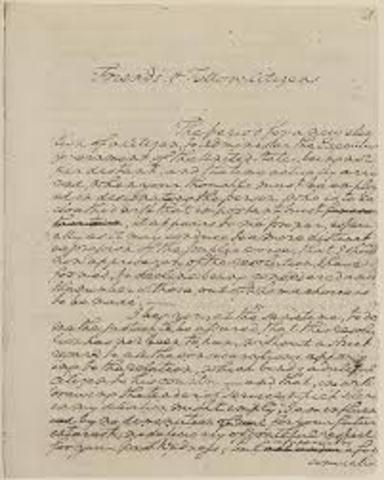 Friends, & Fellow-Citizens
The period for a new elec-
tion of a Citizen, to administer the Executive
government of the United States, being not
far distant, and the time actually arri-
ved, when your thoughts must be employ-
ed in designating the person, who is to be
cloathed with that important trust
it appears to me proper, espe-
cially as it may conduce to a more distinct
expression of the public voice, that I should
now apprise you of the resolution I have
formed, to decline being considered among
the number of those, out of whom a choice is
to be made.
I beg you, at the same time, to do
me the justice to be assured, that this resolu-
tion has not been taken, without a strict
regard to all the considerations appertain-
ing to the relation, which binds a dutiful
citizen to his country — and that, in with-
drawing the tender of service which silence
in my situation might imply, I am influen-
ced by no diminution of zeal for your future
interest, no deficiency of grateful respect
for your past kindness; but